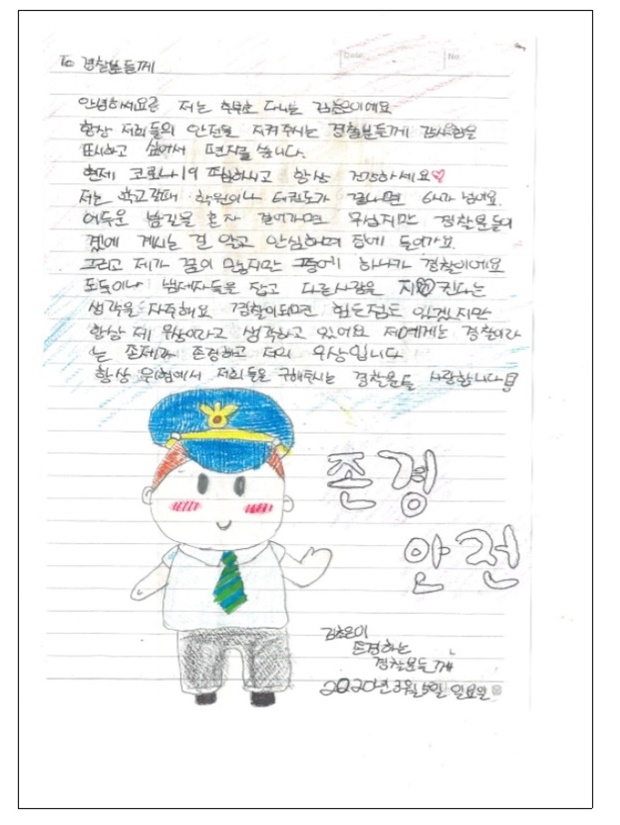 To 경찰분들께
Date No
안녕하세요 저는 다니는 이에요
항상 저희들의 안전을 지켜주시는 경찰분들께 감사함을
표시하고 싶어서 편지를 씁니다.
현제 코로나19 조심하시고 항상 건강하세요♡
저는 학교갈때 학원이나 태권도가 끝나면 6시가 넘어요.
어두운 밤길을 혼자 걸어가면 무섭지만 경찰분들이
곁에 계시는 걸 알고 안심하며 집에 들어가요
그리고 제가 꿈이 많지만 그중에 하나가 경찰이에요
도둑이나 범죄자들을 잡고 다른사람을 지킨다는
생각을 자주해요 경찰이되면 힘든점도 있겠지만
항상 제 우상이라고 생각하고 있어요 저에게는 경찰이라
는 존재가 존경하고 저의 우상입니다
항상 위험에서 저희들을 구해주시는 경찰분들 사랑합니다
존경
안전
존경하는
경찰분들께
2020년 3월 일요일